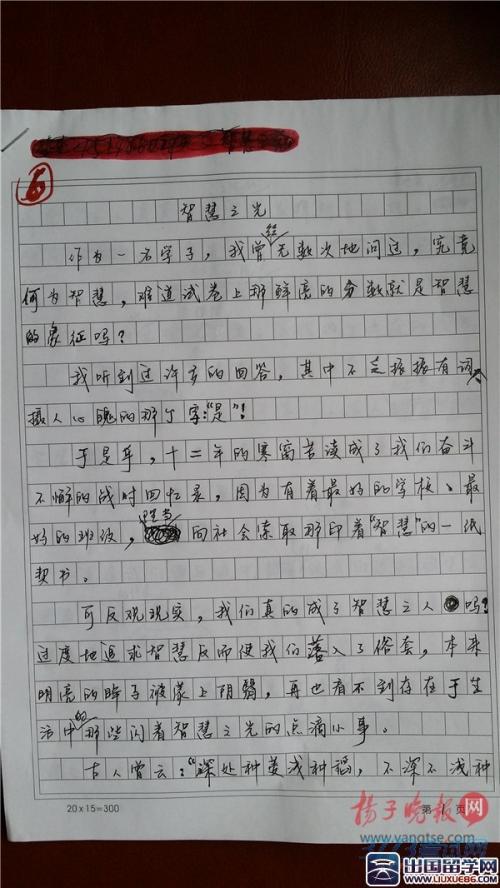 6
智慧之光
作为一名学子，我曾经无数次地问过，究竟
何为智慧，难道试卷上那鲜亮的分数就是智慧
的象征吗？
我听到过许多的回答，其中不乏振振有词、
摄人心魄的那个字："是"！
于是乎，十二年的寒窗苦读成了我们奋斗
不懈的战时回忆录，因为有着最好的学校、最
好的班级，向社会索取那印着"智慧"的一纸
契书。
可反观现实，我们真的成了智慧之人吗？
过度地追求智慧反而使我们落入了俗套，本来
明亮的眸子被蒙上阴翳，再也看不到存在于生
活中的那些闪着智慧之光的点滴小事。
古人曾云："深处种菱浅种稻，不深不浅种
20×15=300
第 1 页
扬子晚报网
www.yangtse.com
出国留学网
WWW.LIUXUE86.COM